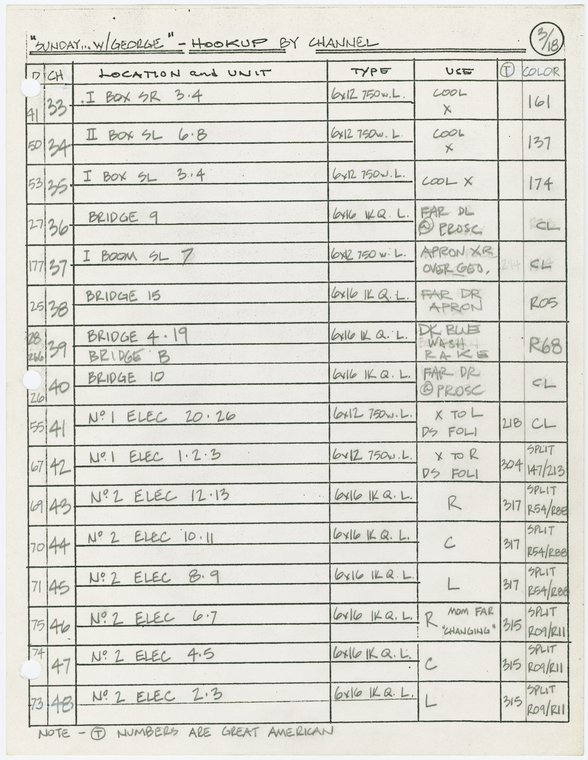 "SUNDAY... W/GEORGE" - HOOKUP BY CHANNEL 3/18
D CH LOCATION and UNIT TYPE USE T COLOR
41 33 I BOX SR 3·4 6x12 750w.L. COOL X 161
50 34 II BOX SL 6·8 6x12 750w.L. COOL X 137
53 35 I BOX SL 3·4 6x12 750w.L. COOL X 174
27 36 BRIDGE 9 6x16 1K Q. L. FAR DL
@ PROSC CL
177 37 I BOOM SL 7 6x12 750w.L. APRON XR
OVER GEO. CL
25 38 BRIDGE 15 6x16 1K Q. L. FAR DR
APRON R05
28 39 BRIDGE 4·19 6x16 1K Q. L. DK BLUE
WASH R68
BRIDGE B RAKE
26 40 BRIDGE 10 6x16 1K Q. L. FAR DR
@ PROSC CL
55 41 Nº 1 ELEC 20·26 6x12 750w.L. X TO L
DS FOLI 218 CL
67 42 Nº 1 ELEC 1·2·3 6x12 750w.L. X TO R
DS FOLI 304 SPLIT
147/213
69 43 Nº 2 ELEC 12·13 6x16 1K Q. L. R 317 SPLIT
R54/R88
70 44 Nº 2 ELEC 10·11 6x16 1K Q. L. C 317 SPLIT
R54/R88
71 45 Nº 2 ELEC 8·9 6x16 1K Q. L. L 317 SPLIT
R54/R88
75 46 Nº 2 ELEC 6·7 6x16 1K Q. L. R MOM FAR
"CHANGING" 315 SPLIT
R09/R11
74 47 Nº 2 ELEC 4·5 6x16 1K Q. L. C 315 SPLIT
R09/R11
73 48 Nº 2 ELEC 2·3 6x16 1K Q. L. L 315 SPLIT
R09/R11
NOTE - T NUMBERS ARE GREAT AMERICAN